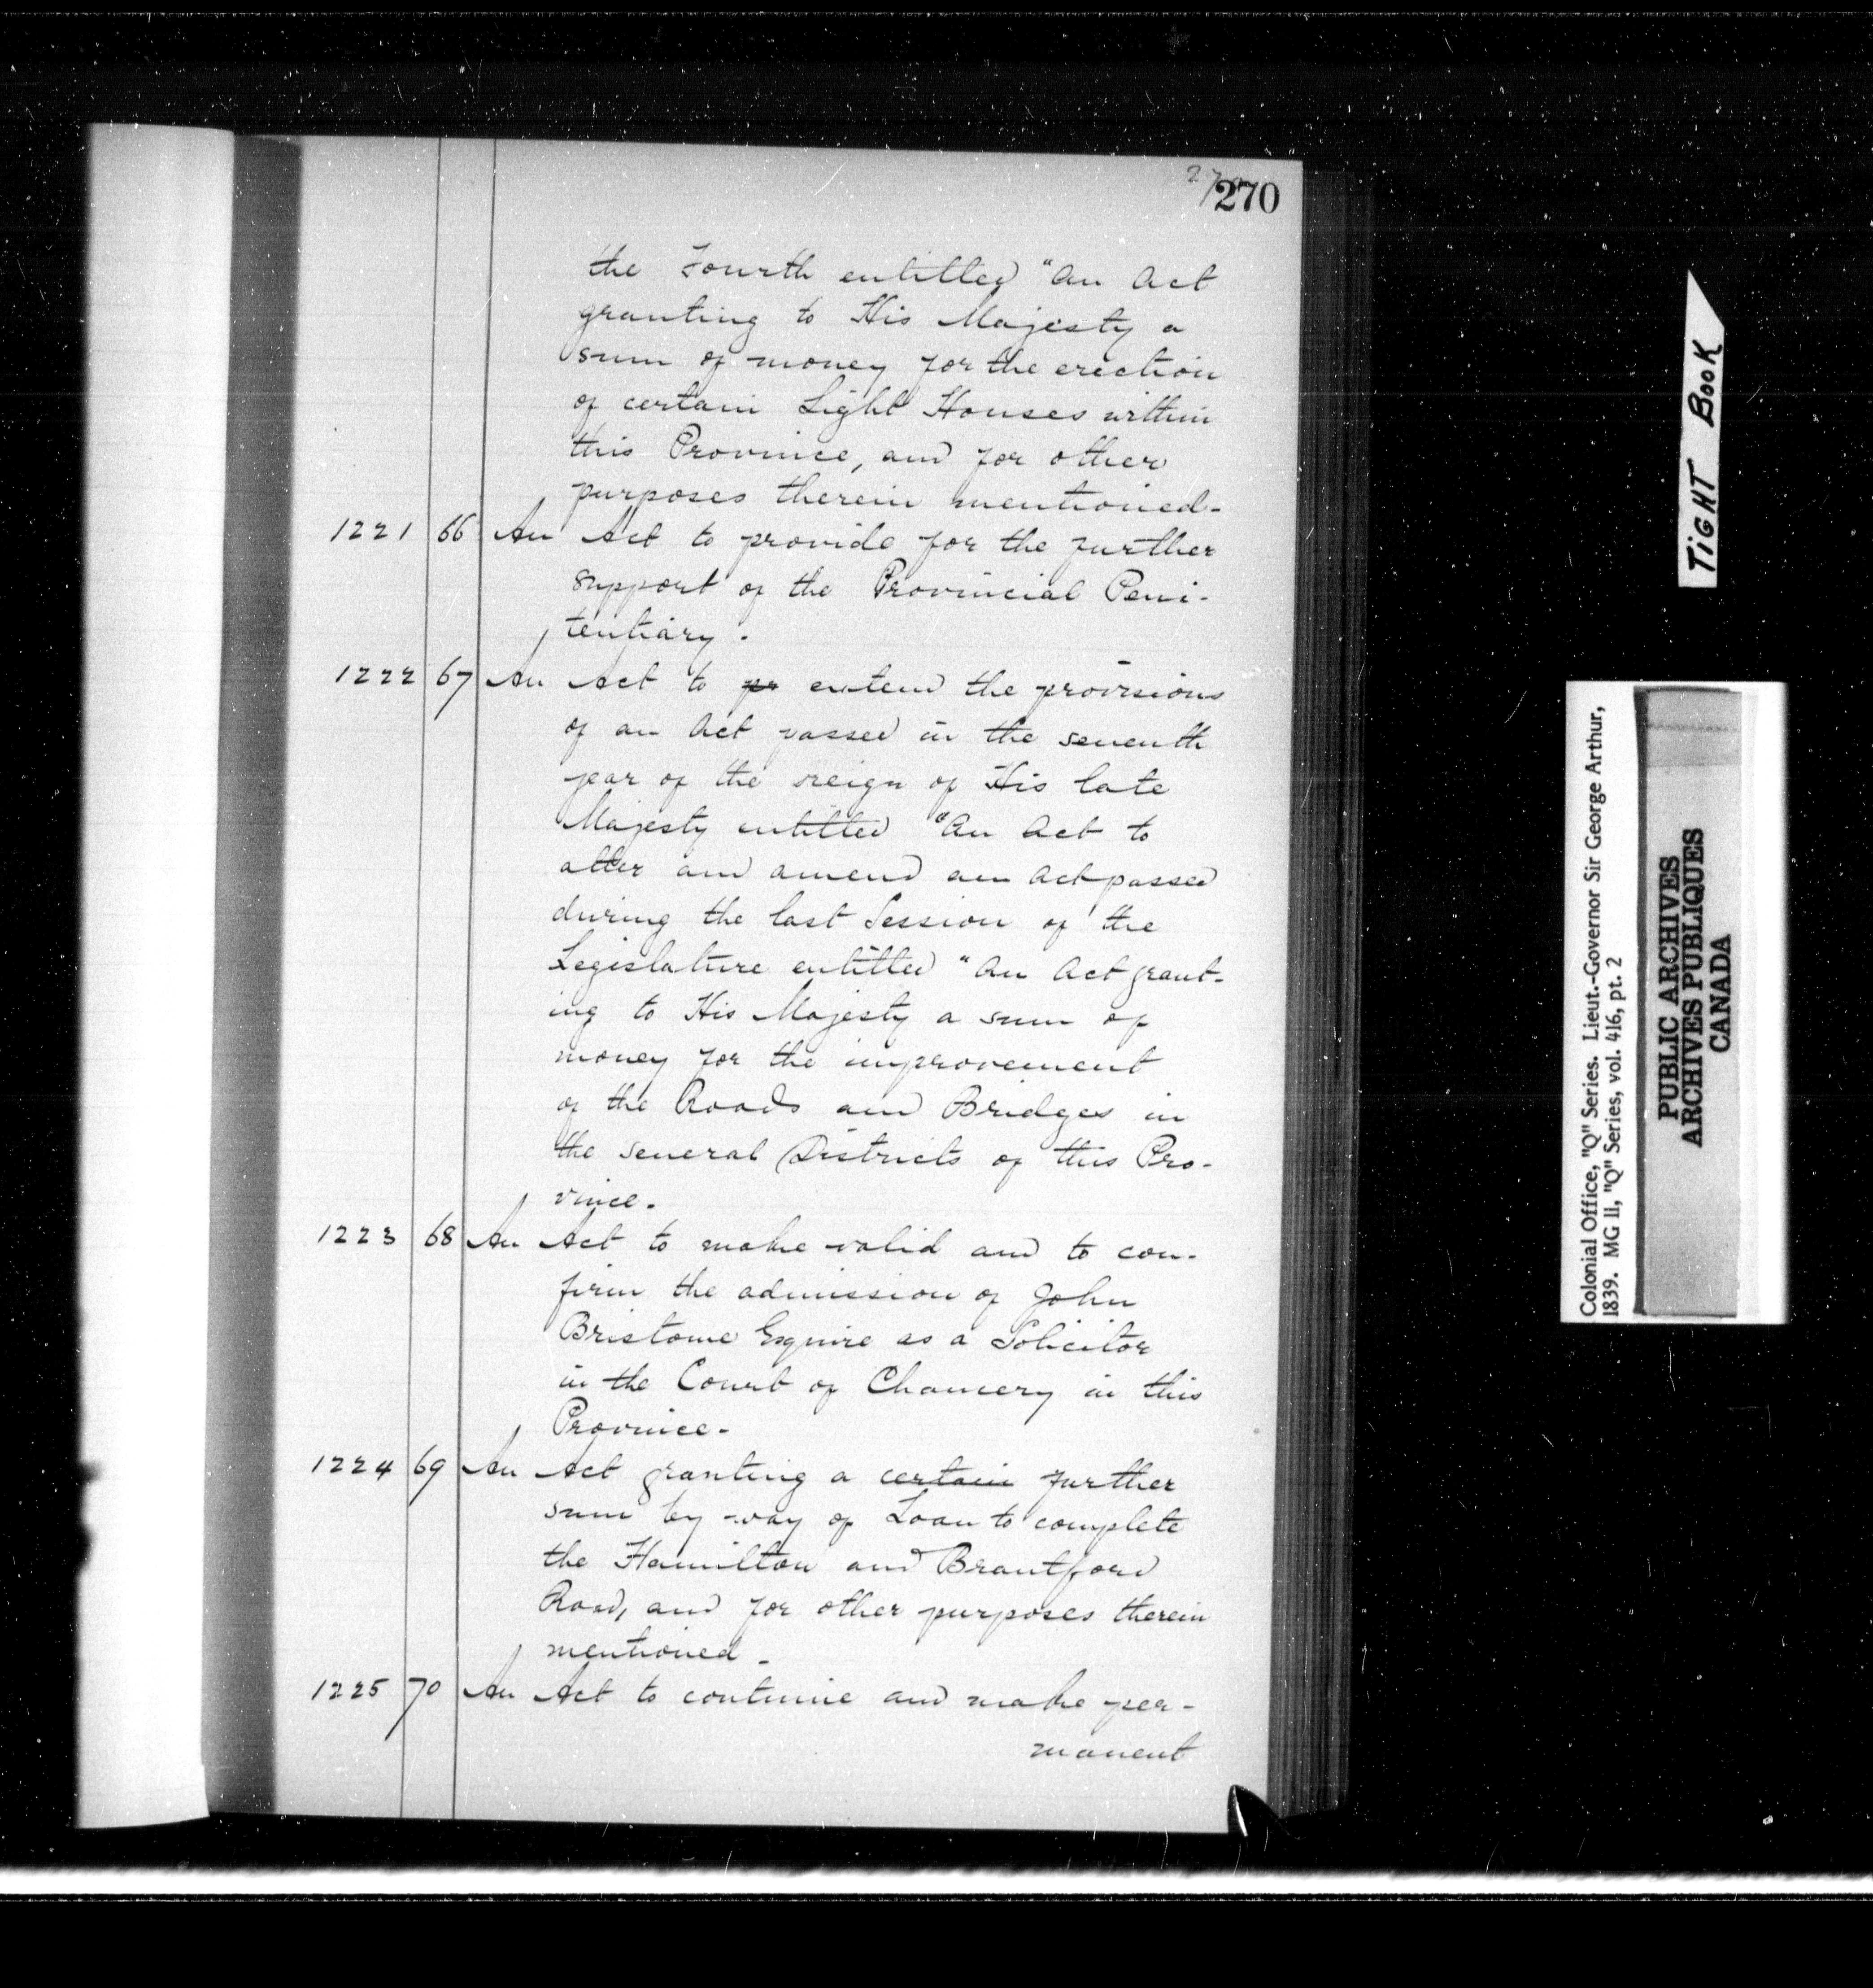 270
270
the Fourth entitled "An Act
granting to His Majesty a
sum of money for the erection
of certain Light Houses within
this Province, and for other
purposes therein mentioned-
1221 66 An Act to provide for the further
support of the Provincial Peni-
tentiary.
1222 67 An Act to pr extend the provisions
of an Act passed in the seventh
year of the reign of His late
Majesty entitled "An Act to
alter and amend an Act passed
during the last Session of the
Legislature entitled "An Act grant-
ing to His Majesty a sum of
money for the improvement
of the Roads and Bridges in
the several Districts of this Pro-
vince.
1223 68 An Act to make valid and to con-
firm the admission of John
Bristowe Esquire as a Solicitor
in the Court of Chancery in this
Province-
1224 69 An Act granting a certain further
sum by way of Loan to complete
the Hamilton and Brantford
Road, and for other purposes therein
mentioned-
1225 70 An Act to continue and make per-
manent
TIGHT BOOK
Colonial Office, "Q" Series. Lieut.-Governor Sir George Arthur,
1839. MG 11, "Q" Series, vol. 416, pt. 2
PUBLIC ARCHIVES
ARCHIVES PUBLIQUES
CANADA